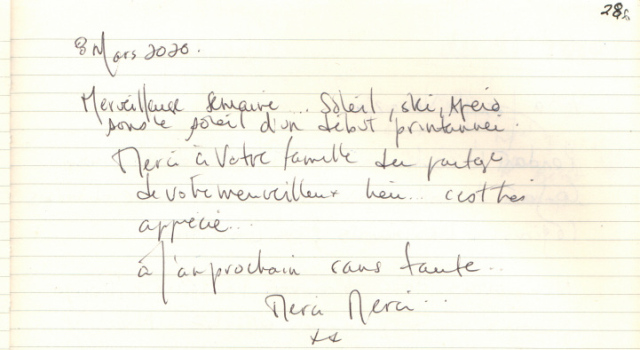 28
8 Mars 2020.
Merveilleuse semaine... Soleil, ski, apéro
sous le soleil d'un début printannier.
Merci à votre famille du partage
de votre merveilleux lieu... c'est très
apprécié...
à l'an prochain sans faute...
Merci Merci...
xx